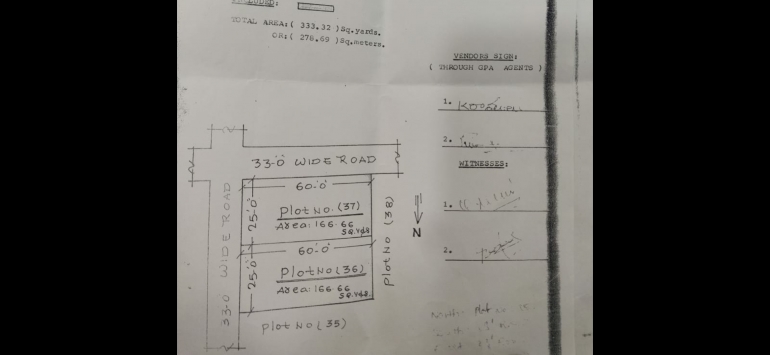 INCLUDED:
TOTAL AREA:( 333.32 )Sq.yards.
OR:( 278.69 )Sq.meters.
VENDORS SIGN:
( THROUGH GPA AGENTS )
1.
2.
WITNESSES:
1.
2.
33-0 WIDE ROAD
60-0
Plot No. (37)
Area: 166-66
SQ.Yds
25-0
60-0
Plot No (36)
Area: 166-66
SQ.Yds.
25-0
33-0 WIDE ROAD
Plot No (38)
N
Plot No (35)